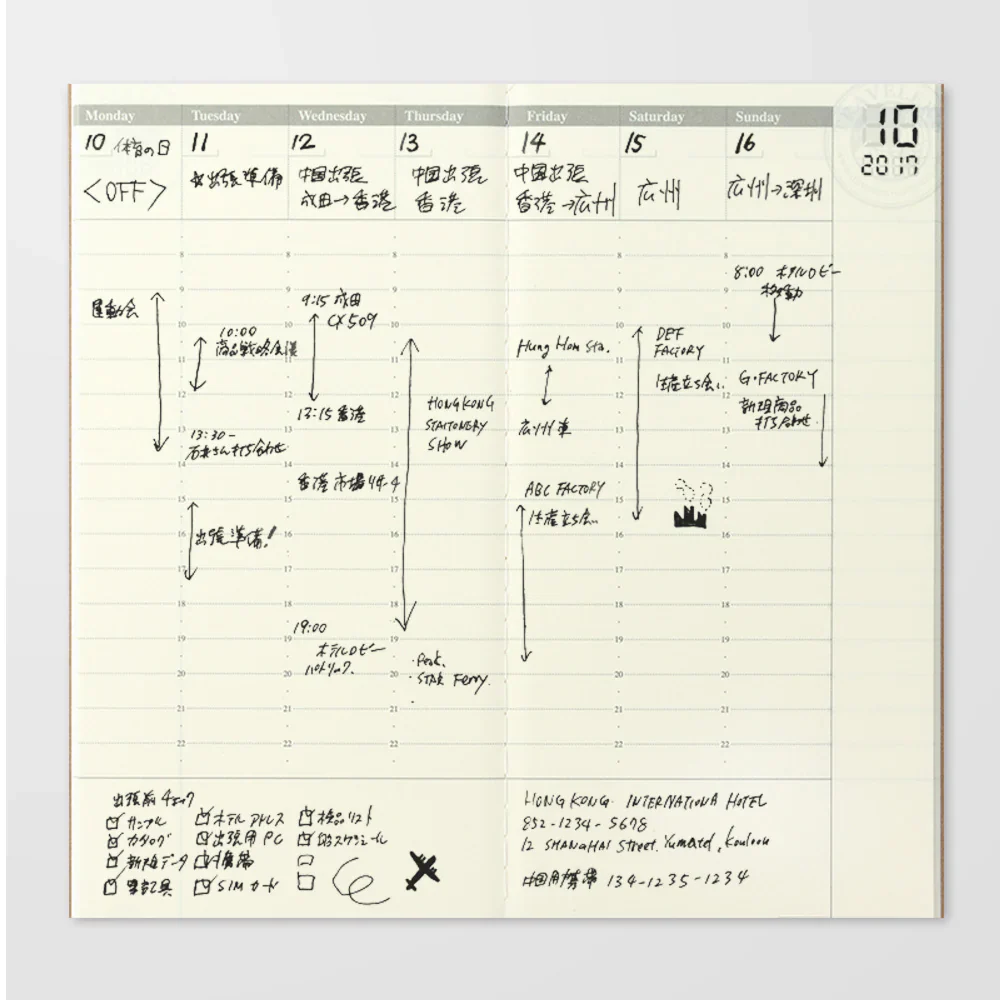 Monday
Tuesday
Wednesday
Thursday
Friday
Saturday
Sunday
10
2017
10 体育の日
<OFF>
運動会
11
出張準備
10:00
商品戦略会議
13:30-
打ち合わせ
出張準備!
12
中国出張
成田→香港
9:15 成田
CX509
13:15 香港
香港市場リサーチ
19:00
ホテルロビー
パトリック.
13
中国出張
香港
HONG KONG
STAITONERY
SHOW
・Peak.
・STAR Ferry.
8
9
10
11
12
13
14
15
16
17
18
19
20
21
22
14
中国出張
香港→広州
Hung Hom Sta.
広州東
ABC FACTORY
生産立ち会い
15
広州
DEF
FACTORY
生産立ち会い
16
広州→深圳
8:00 ホテルロビー
移動
G・FACTORY
新規商品
打ち合わせ
8
9
10
11
12
13
14
15
16
17
18
19
20
21
22
出張前チェック
サンプル
カタログ
新規データ
筆記具
ホテルアドレス
出張用PC
携帯
SIMカード
検品リスト
スケジュール
HONG KONG INTERNATIONA HOTEL
852-1234-5678
12 SHANGHAI Street. Yumatei, Kouloon
中国用携帯 134-1235-1234